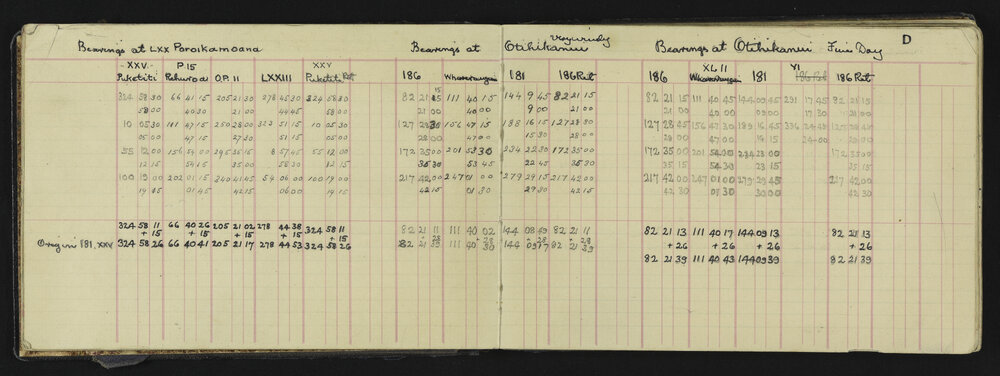 D
Bearings at LXX Paroikamoana Bearings at Otihikanui Bearings at Otihikanui Fine Day
XXV. P.15 XXV XL II VI
Piketiti Pahuroa O.P. 11 LXXIII Piketiti Ret 186 181 186 Ret 186 181 186 Ret
324 58 30 66 41 15 205 21 30 278 45 30 324 58 30 82 21 15 111 40 15 144 9 45 82 21 15 82 21 15 111 40 45 144 09 45 291 17 45 82 21 15
58 00 40 30 21 00 44 45 58 00 21 00 40 00 9 00 21 00 21 00 40 00 17 30 21 00
10 05 30 111 47 15 250 28 00 323 51 15 10 05 30 127 28 30 156 47 15 188 16 15 127 28 30 127 28 45 156 47 30 189 16 45 336 24 45
05 00 47 15 27 30 51 15 05 00 28 00 47 00 15 30 28 00 28 00 47 00 14 15 24 00
55 12 00 156 54 00 295 35 45 8 57 45 55 12 00 172 35 00 201 53 30 234 22 30 172 35 00 172 35 00 201 54 00 234 23 00 172 35 00
12 15 54 15 35 00 58 30 12 15 35 30 53 45 22 45 35 30 35 15 54 30 23 15 35 15
100 19 00 202 01 15 340 41 45 54 06 00 100 19 00 217 42 00 247 01 00 279 29 15 217 42 00 217 42 00 247 01 00 279 29 45 217 42 00
19 45 01 45 42 15 06 00 19 15 42 15 01 30 29 30 42 15 42 30 01 30 30 00 42 30
324 58 11 66 40 26 205 21 02 278 44 38 324 58 11 82 21 11 111 40 02 144 08 49 82 21 11 82 21 13 111 40 17 144 09 13 82 21 13
+ 15 + 15 + 15 + 15 + 15 + 28 + 28 + 28 + 28 + 26 + 26 + 26 + 26
Origin 181. XXV 324 58 26 66 40 41 205 21 17 278 44 53 324 58 26 82 21 39 111 40 30 144 09 17 82 21 39
82 21 39 111 40 43 144 09 39 82 21 39